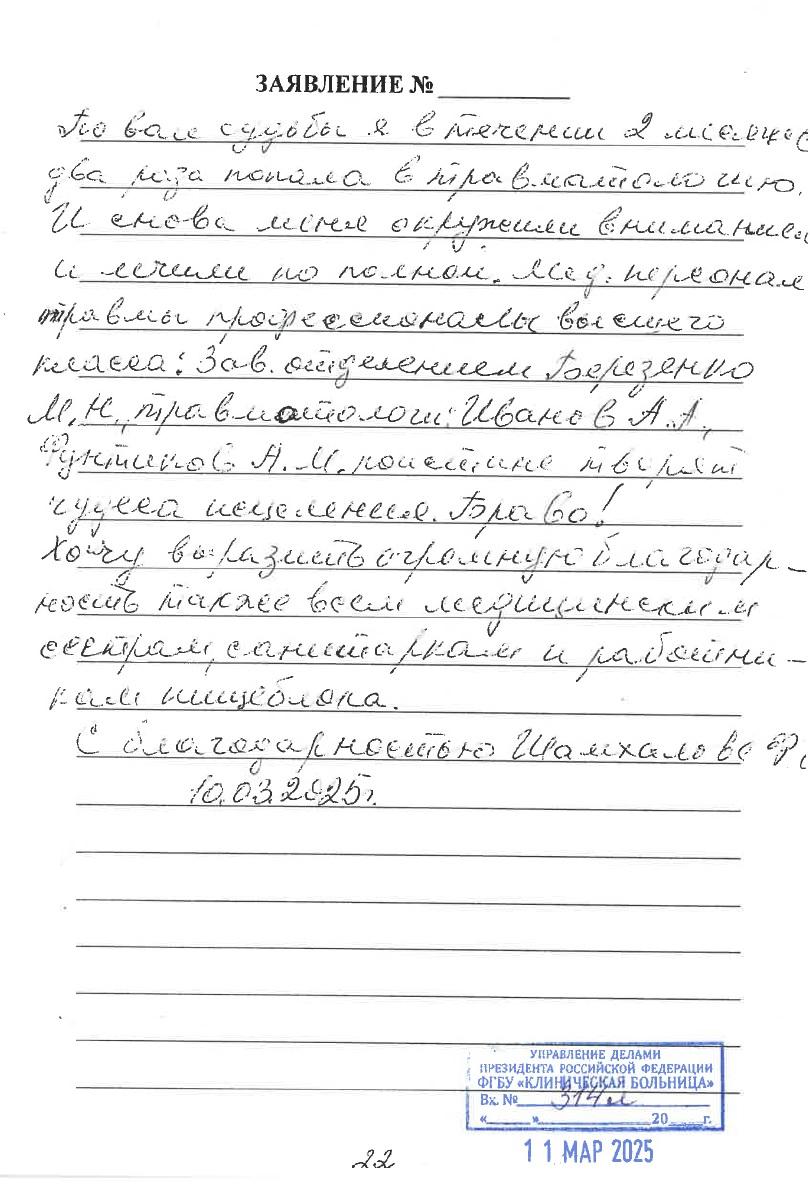 ЗАЯВЛЕНИЕ № ____________
По воле судьбы я в течении 2 месяцев
два раза попала в травматологию.
И снова меня окружили вниманием
и лечили по полной. Мед. персонал
травмы профессионалы высшего
класса: Зав. отделением Березенко
М.Н., травматологи: Иванов А.А.,
Фунтиков А.М. поистине творят
чудеса исцеления. Браво!
Хочу выразить огромную благодар-
ность также всем медицинским
сёстрам, санитаркам и работни-
кам пищеблока.
С благодарностью Шамхалова
10.03.2025г.
УПРАВЛЕНИЕ ДЕЛАМИ
ПРЕЗИДЕНТА РОССИЙСКОЙ ФЕДЕРАЦИИ
ФГБУ «КЛИНИЧЕСКАЯ БОЛЬНИЦА»
Вх. № 314л
«____»____________20____г.
11 МАР 2025
22